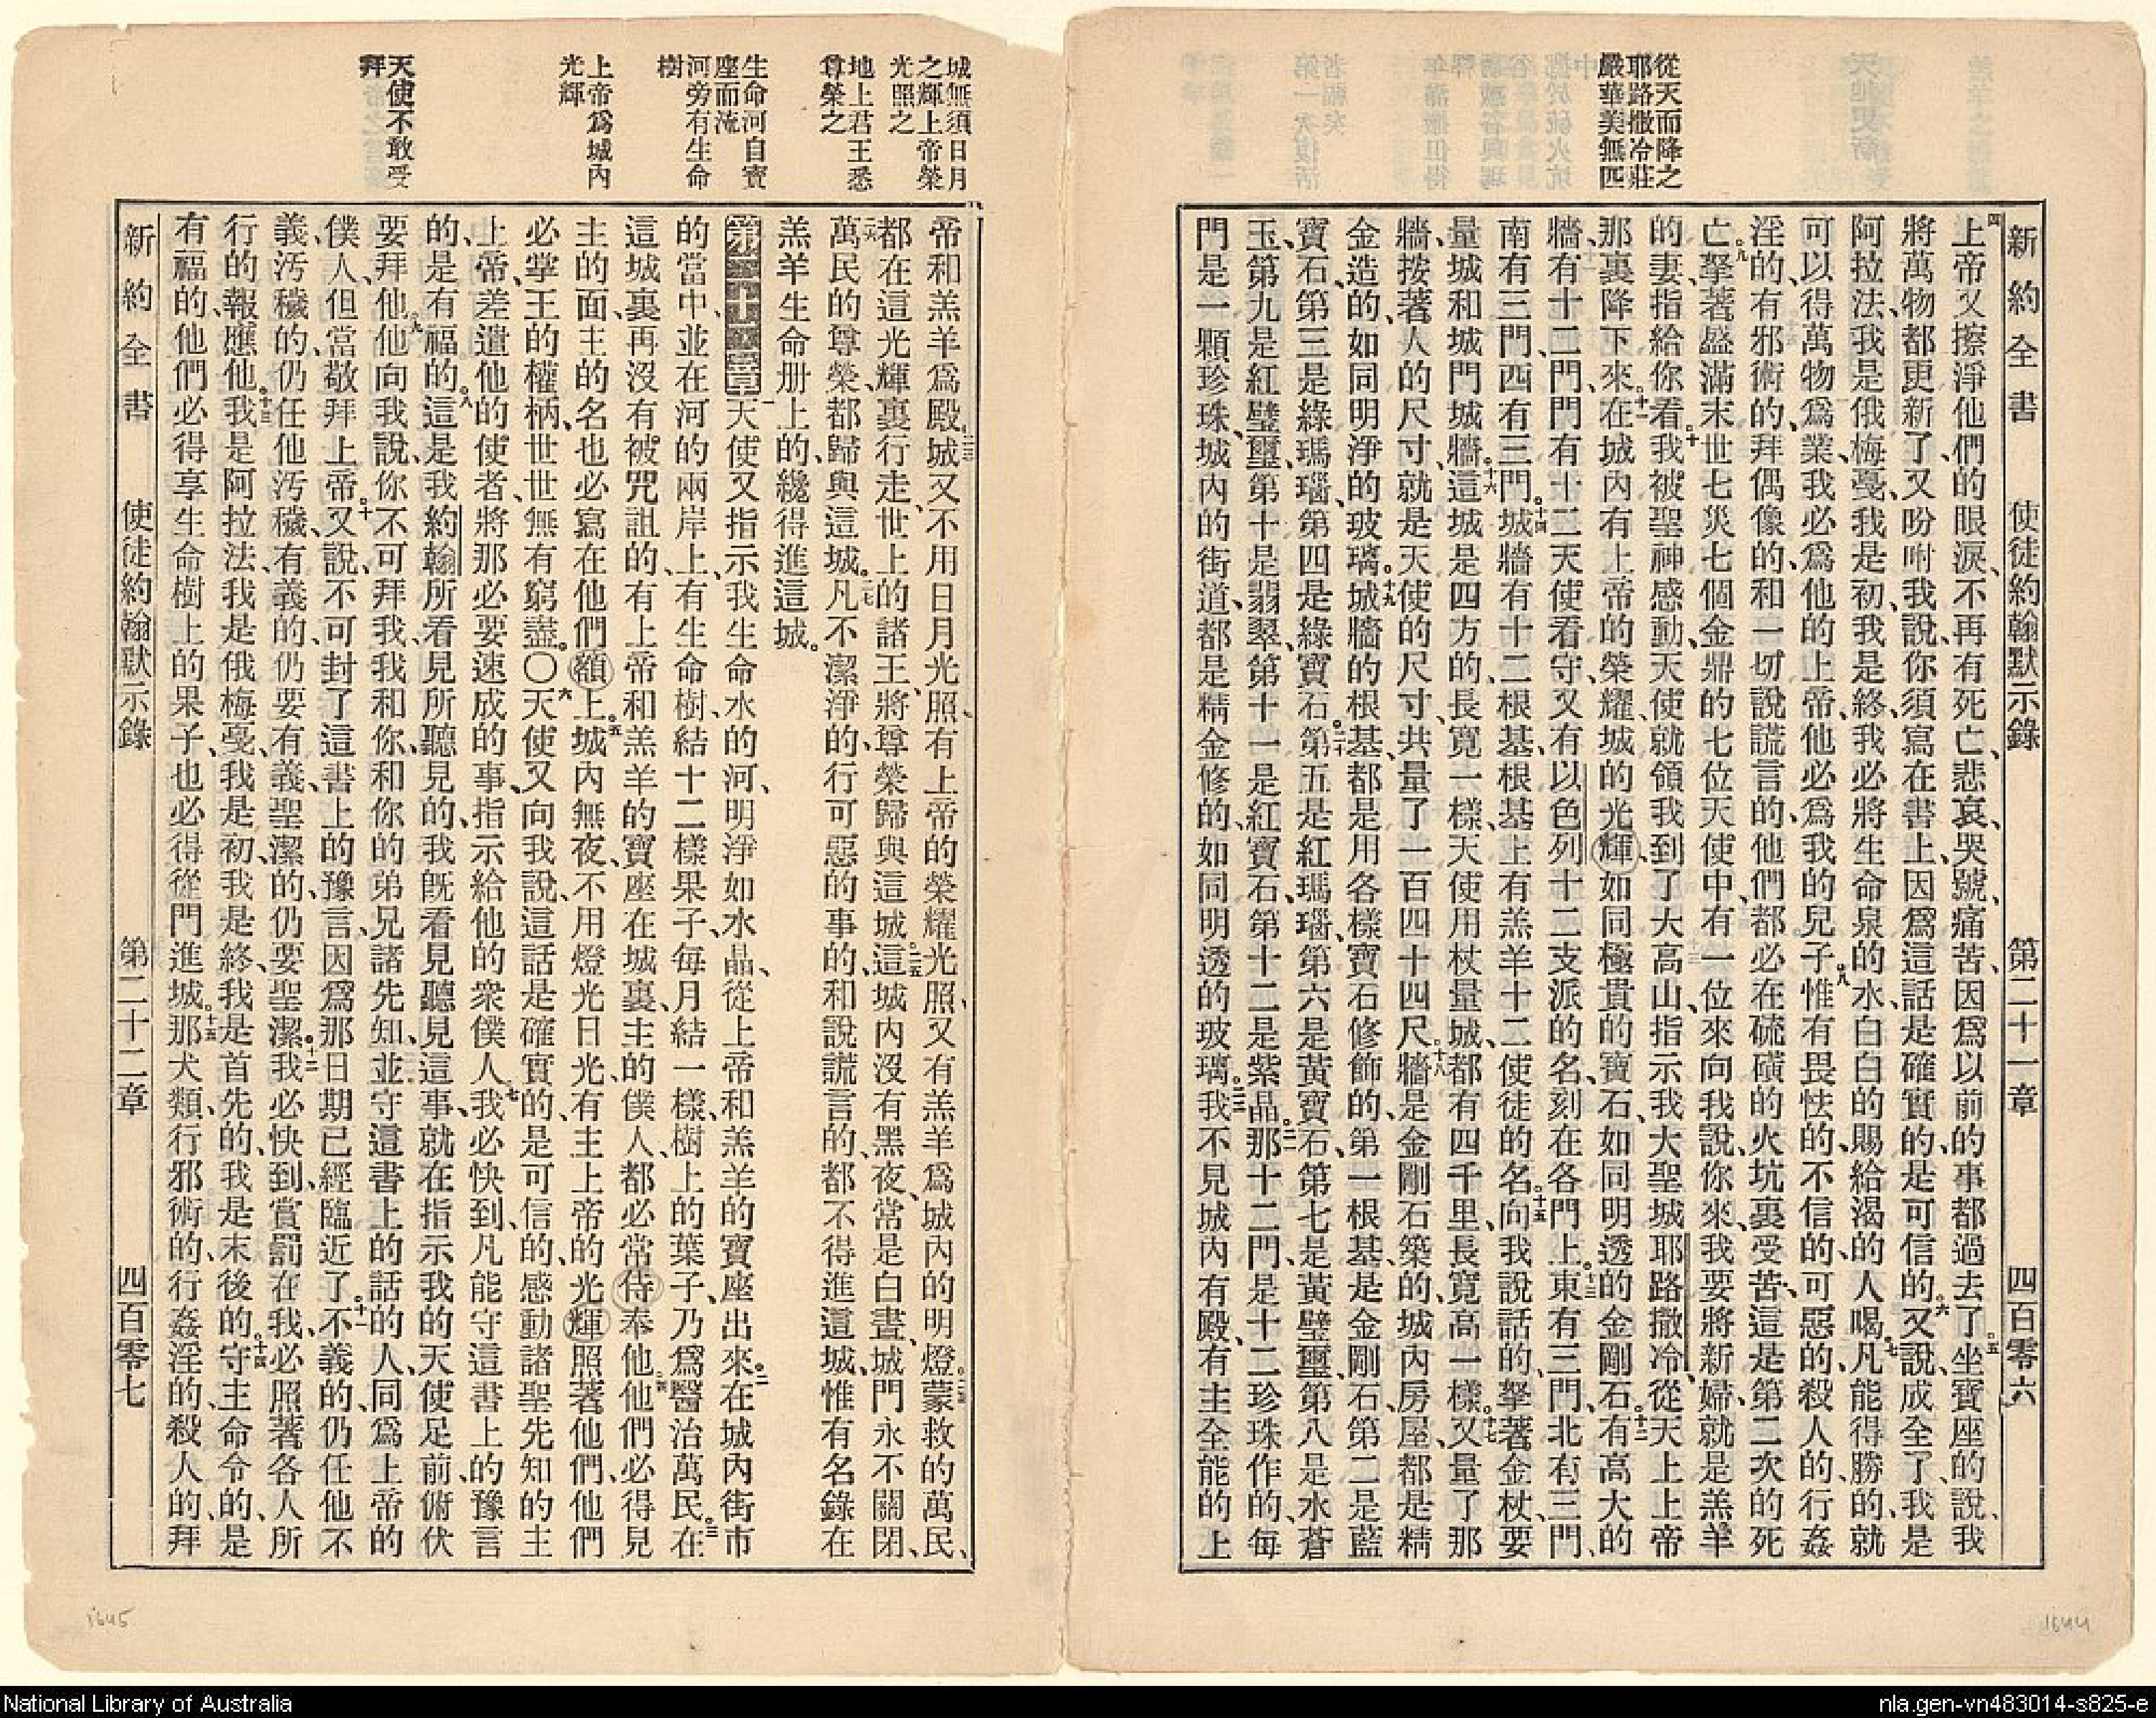 從天而降之
耶路撒冷莊
嚴華美無匹
新約全書 使徒約翰默示錄 第二十一章 四百零六
四上帝又擦淨他們的眼淚、不再有死亡、悲哀、哭號、痛苦、因爲以前的事都過去了。五坐寶座的說、我
將萬物都更新了、又吩咐我說、你須寫在書上、因爲這話是確實的、是可信的。六又說、成全了、我是
阿拉法、我是俄梅戛、我是初、我是終、我必將生命泉的水、白白的賜給渴的人喝。七凡能得勝的、就
可以得萬物爲業、我必爲他的上帝、他必爲我的兒子。八惟有畏怯的、不信的、可惡的、殺人的、行姦
淫的、有邪術的、拜偶像的、和一切說謊言的、他們都必在硫磺的火坑裏受苦、這是第二次的死
亡。九拏著盛滿末世七災七個金鼎的七位天使中、有一位來向我說、你來、我要將新婦、就是羔羊
的妻、指給你看。十我被聖神感動、天使就領我到了大高山、指示我大聖城耶路撒冷、從天上上帝
那裏降下來。十一在城內有上帝的榮耀、城的光輝、如同極貴的寶石、如同明透的金剛石。十二有高大的
牆、有十二門、門有十二天使看守、又有以色列十二支派的名、刻在各門上。十三東有三門、北有三門、
南有三門、西有三門。十四城牆有十二根基、根基上有羔羊十二使徒的名。十五向我說話的、拏著金杖、要
量城和城門城牆。十六這城是四方的、長寬一樣、天使用杖量城、都有四千里、長寬高一樣。十七又量了那
牆、按著人的尺寸、就是天使的尺寸、共量了一百四十四尺。十八牆是金剛石築的、城內房屋、都是精
金造的、如同明淨的玻璃。十九城牆的根基、都是用各樣寶石修飾的、第一根基是金剛石、第二是藍
寶石、第三是綠瑪瑙、第四是綠寶石。二十第五是紅瑪瑙、第六是黃寶石、第七是黃璧璽、第八是水蒼
玉、第九是紅璧璽、第十是翡翠、第十一是紅寶石、第十二是紫晶。二一那十二門、是十二珍珠作的、每
門是一顆珍珠、城內的街道、都是精金修的、如同明透的玻璃。二二我不見城內有殿、有主全能的上
城無須日月
之輝上帝榮
光照之
地上君王悉
尊榮之
生命河自寶
座而流
河旁有生命
樹
上帝爲城內
光輝
天使不敢受
拜
帝和羔羊爲殿。二三城又不用日月光照、有上帝的榮耀光照、又有羔羊爲城內的明燈。二四蒙救的萬民、
都在這光輝裏行走、世上的諸王、將尊榮歸與這城。二五這城內沒有黑夜、常是白晝、城門永不關閉、
二六萬民的尊榮、都歸與這城。二七凡不潔淨的、行可惡的事的、和說謊言的、都不得進這城、惟有名錄在
羔羊生命册上的、纔得進這城。
第二十二章 一天使又指示我生命水的河、明淨如水晶、從上帝和羔羊的寶座出來。二在城內街市
的當中、並在河的兩岸上、有生命樹、結十二樣果子、每月結一樣、樹上的葉子、乃爲醫治萬民。三在
這城裏再沒有被咒詛的、有上帝和羔羊的寶座在城裏、主的僕人、都必常侍奉他。四他們必得見
主的面、主的名也必寫在他們額上。五城內無夜、不用燈光日光、有主上帝的光輝照著他們、他們
必掌王的權柄、世世無有窮盡。〇六天使又向我說、這話是確實的、是可信的、感動諸聖先知的主
上帝、差遣他的使者、將那必要速成的事、指示給他的衆僕人。七我必快到、凡能守這書上的豫言
的、是有福的。八這是我約翰所看見所聽見的、我旣看見聽見這事、就在指示我的天使足前俯伏
要拜他。九他向我說、你不可拜我、我和你、和你的弟兄諸先知、並守這書上的話的人、同爲上帝的
僕人、但當敬拜上帝。十又說、不可封了這書上的豫言、因爲那日期已經臨近了。十一不義的、仍任他不
義、汚穢的、仍任他汚穢、有義的、仍要有義、聖潔的、仍要聖潔。十二我必快到、賞罰在我、必照著各人所
行的報應他。十三我是阿拉法、我是俄梅戛、我是初、我是終、我是首先的、我是末後的。十四守主命令的、是
有福的、他們必得享生命樹上的果子、也必得從門進城。十五那犬類、行邪術的、行姦淫的、殺人的、拜
新約全書 使徒約翰默示錄 第二十二章 四百零七
1645
1644
National Library of Australia
nla.gen-vn483014-s825-e